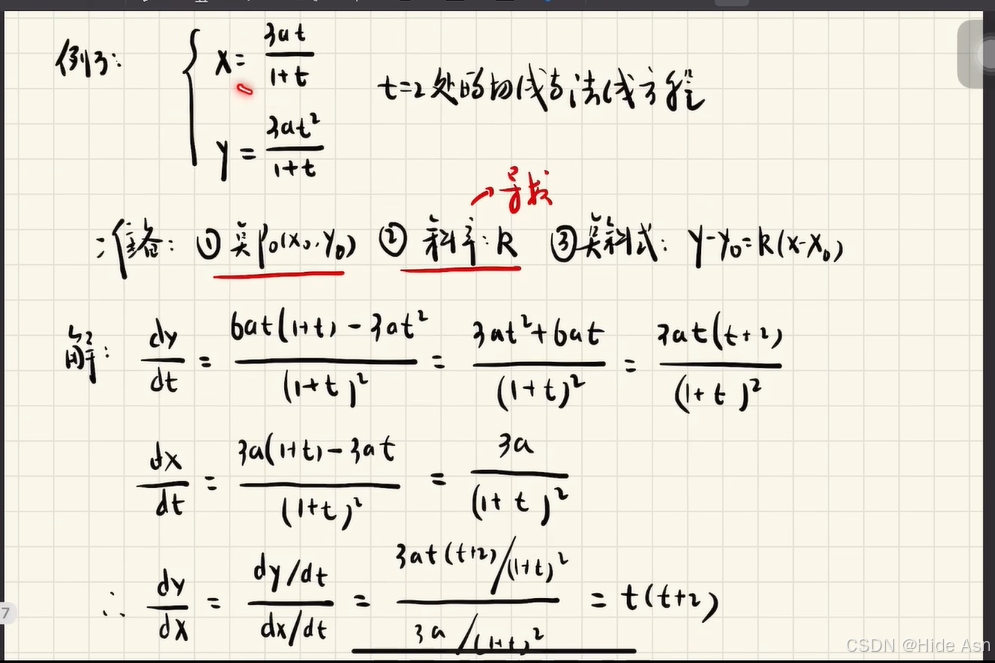 例3: { x = 3at/(1+t)
t=2处的切线与法线方程
y = 3at²/(1+t)
→导数
准备: ① 点P₀(x₀,y₀) ② 斜率: k ③ 点斜式: y-y₀=k(x-x₀)
解: dy/dt = (6at(1+t) - 3at²)/(1+t)² = (3at²+6at)/(1+t)² = 3at(t+2)/(1+t)²
dx/dt = (3a(1+t) - 3at)/(1+t)² = 3a/(1+t)²
∴ dy/dx = (dy/dt)/(dx/dt) = (3at(t+2)/(1+t)²)/(3a/(1+t)²) = t(t+2)
7
CSDN @Hide Asn